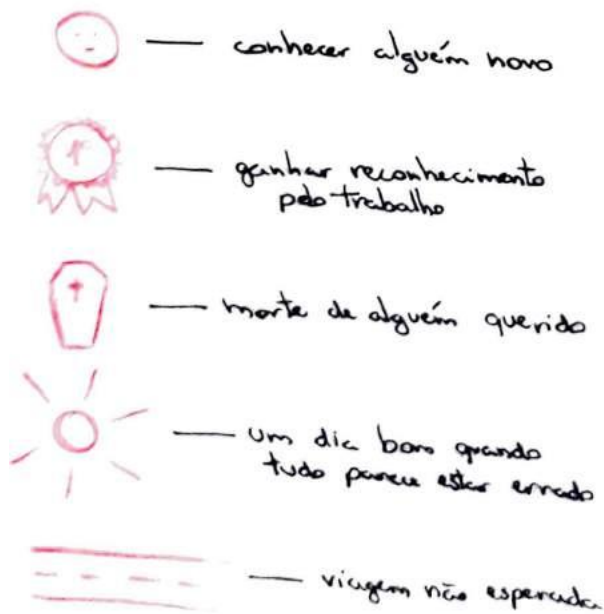 conhecer alguém novo
ganhar reconhecimento
pelo trabalho
morte de alguém querido
um dia bom quando
tudo parece estar errado
viagem não esperada